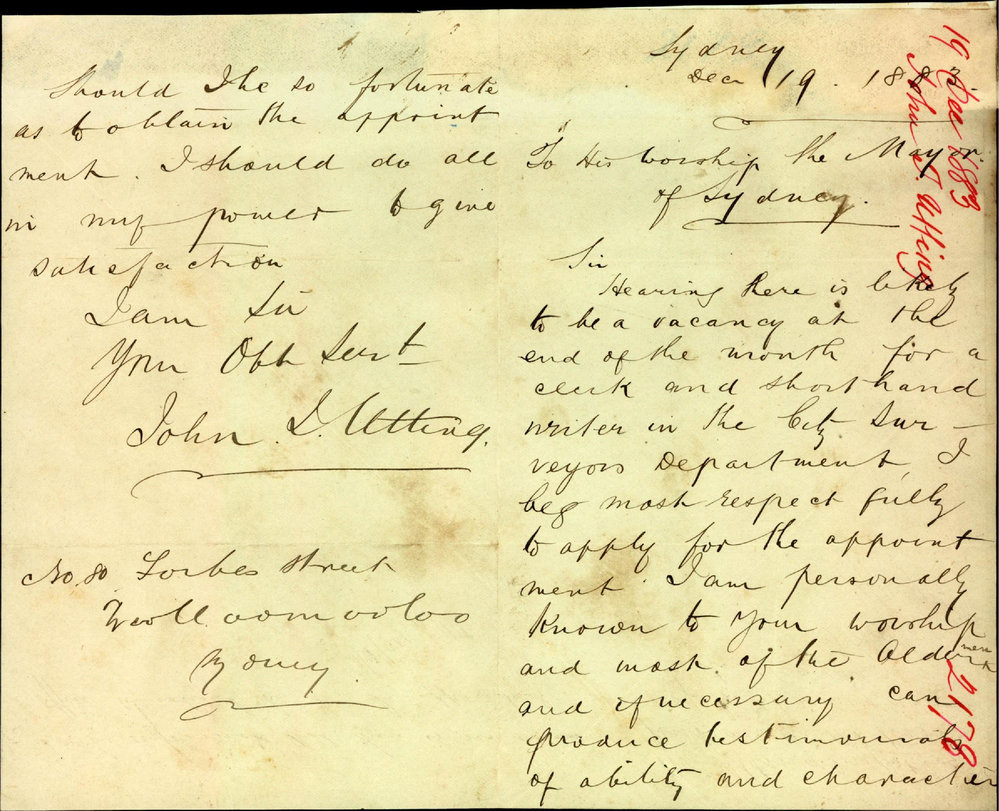 Sydney
Dec 19. 1883.
To His worship the Mayor
of Sydney.
Sir
Hearing there is likely
to be a vacancy at the
end of the month for a
clerk and shorthand
writer in the City Sur-
veyors Department, I
beg most respectfully
to apply for the appoint
ment. I am personally
known to your worship
and most of the Aldermen
and if necessary can
produce testimonials
of ability and character
Should I be so fortunate
as to obtain the appoint
ment. I should do all
in my power to give
satisfaction
I am Sir
Your Obt Servt
John I. Utting.
No. 80 Forbes Street
Woolloomooloo
Sydney
19 Dec 1883
John I Utting
2178